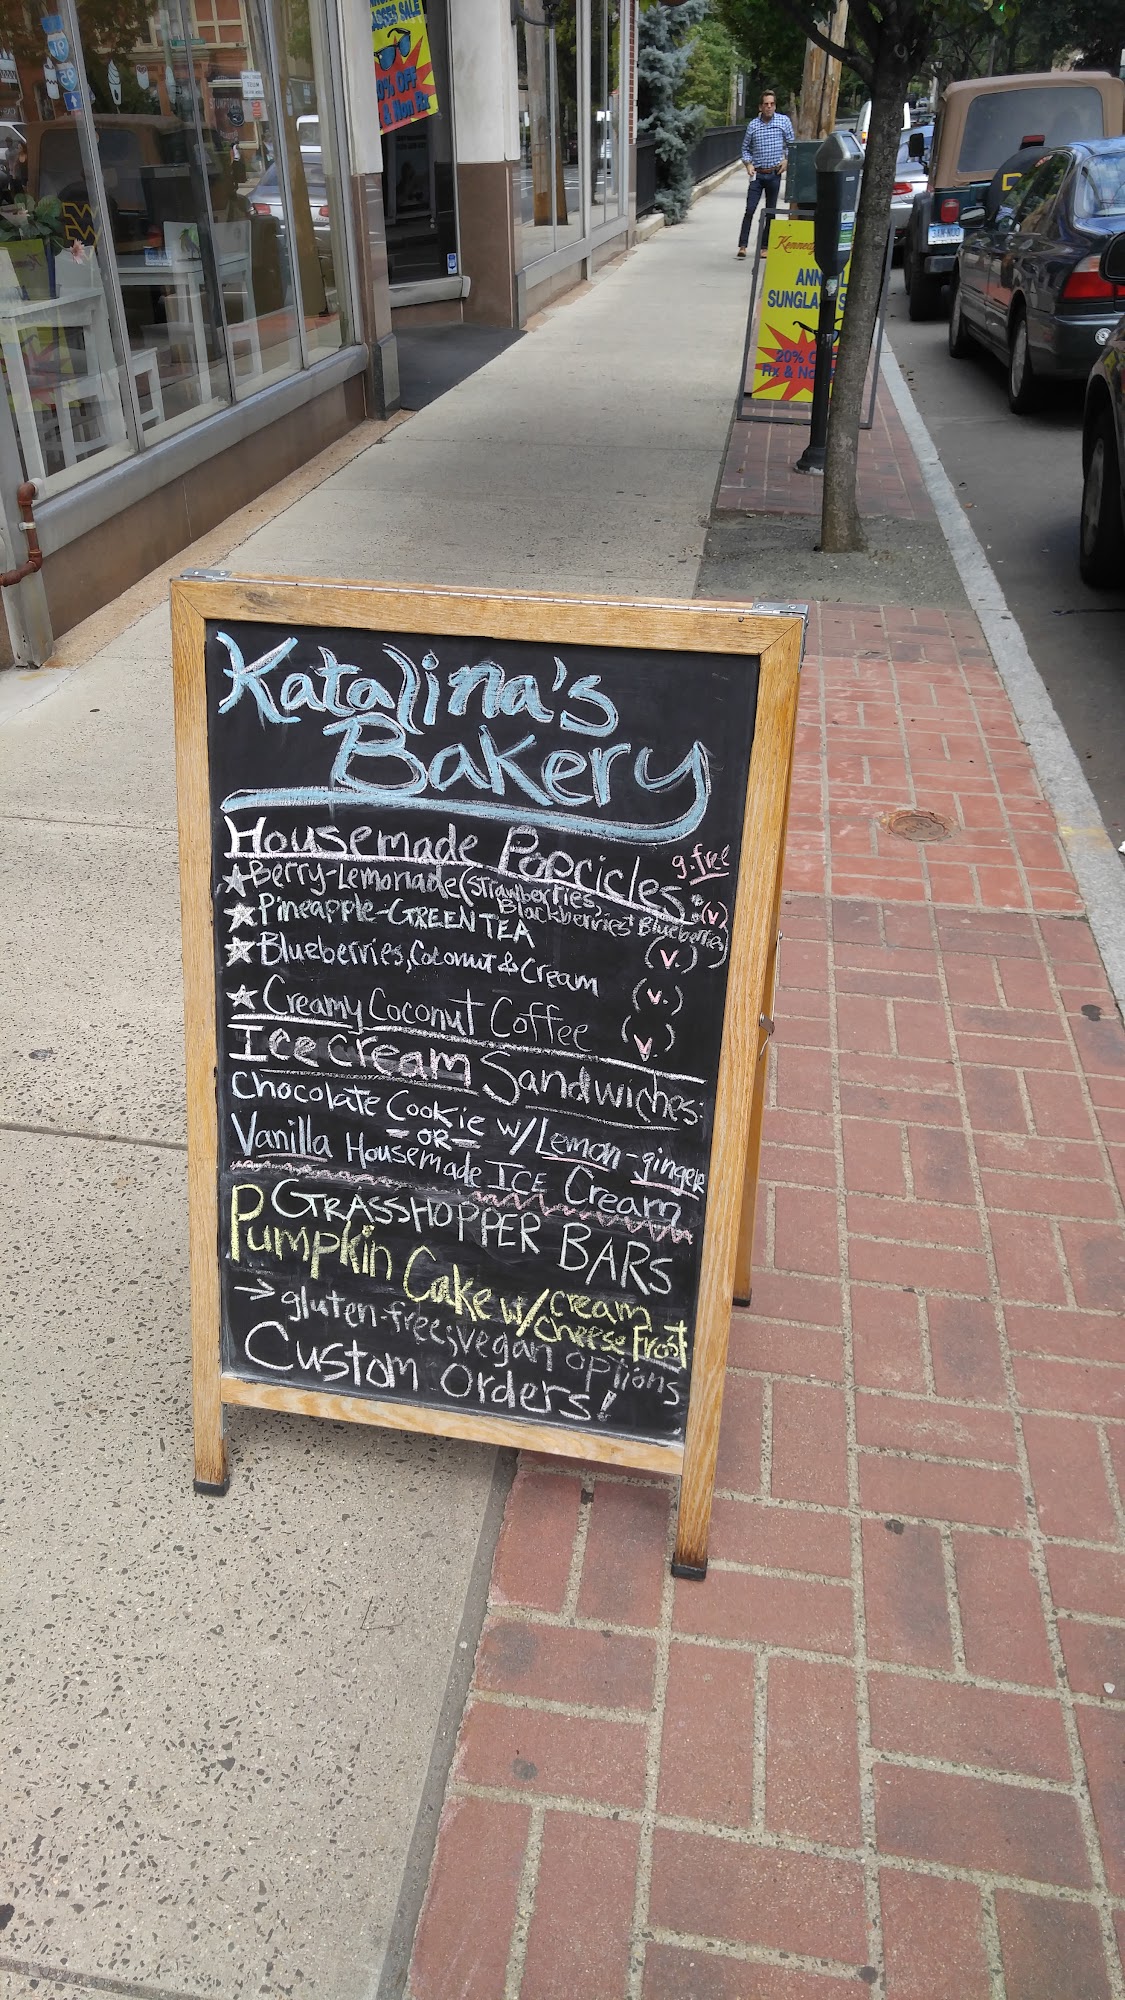 SALE
% OFF
& Non Rx
91
95
Kennedy
ANN L
SUNGLA S
20% O
Rx & No
Katalina's
Bakery
Housemade Popcicles: g.free
☆ Berry-Lemonade (strawberries, (v.)
Blackberries + Blueberries)
☆ Pineapple-GREEN TEA (v.)
☆ Blueberries, Coconut & Cream (v.)
☆ Creamy Coconut Coffee (v.)
Ice Cream Sandwiches:
Chocolate Cookie w/Lemon-ginger
-OR-
Vanilla Housemade ICE Cream
GRASSHOPPER BARS
Pumpkin Cake w/cream
cheese Frost
→ gluten-free; vegan options
Custom Orders!